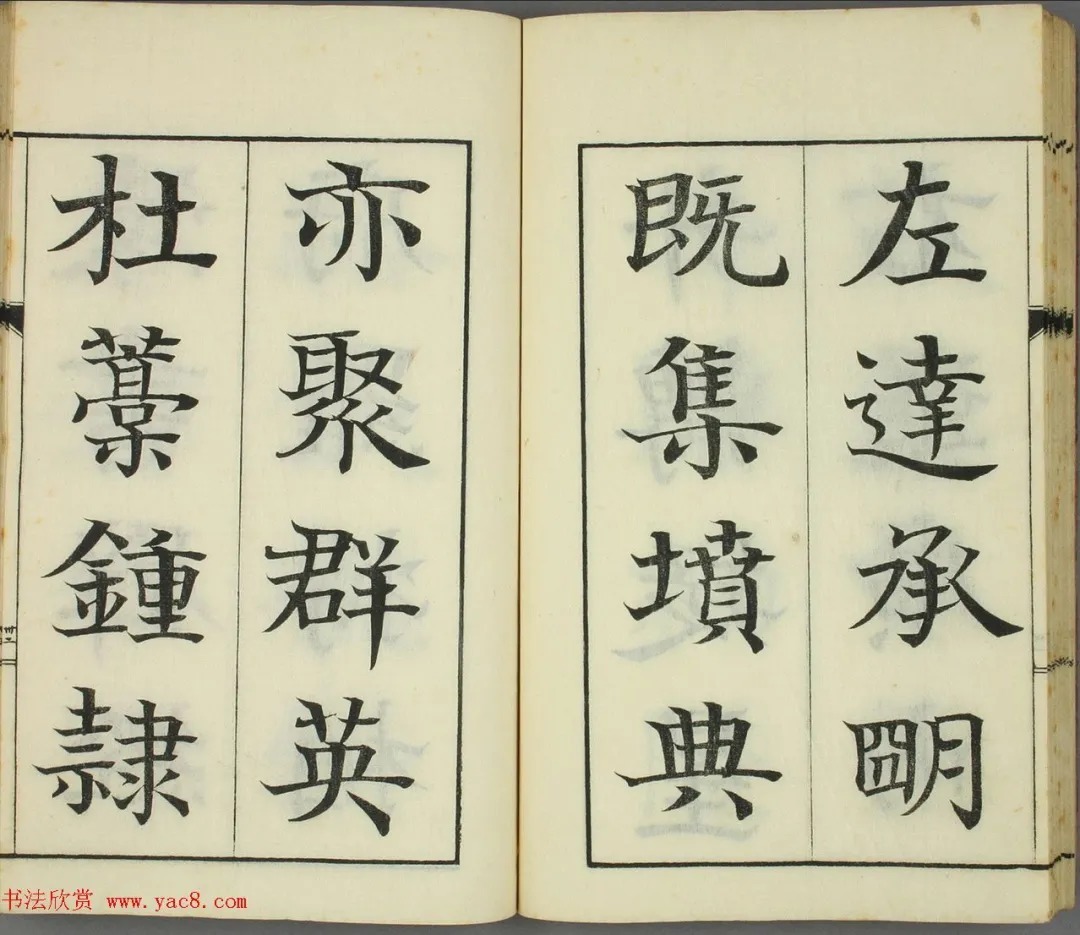 左達承朙
既集墳典
亦聚群英
杜藁鍾隸
书法欣赏 www.yac8.com